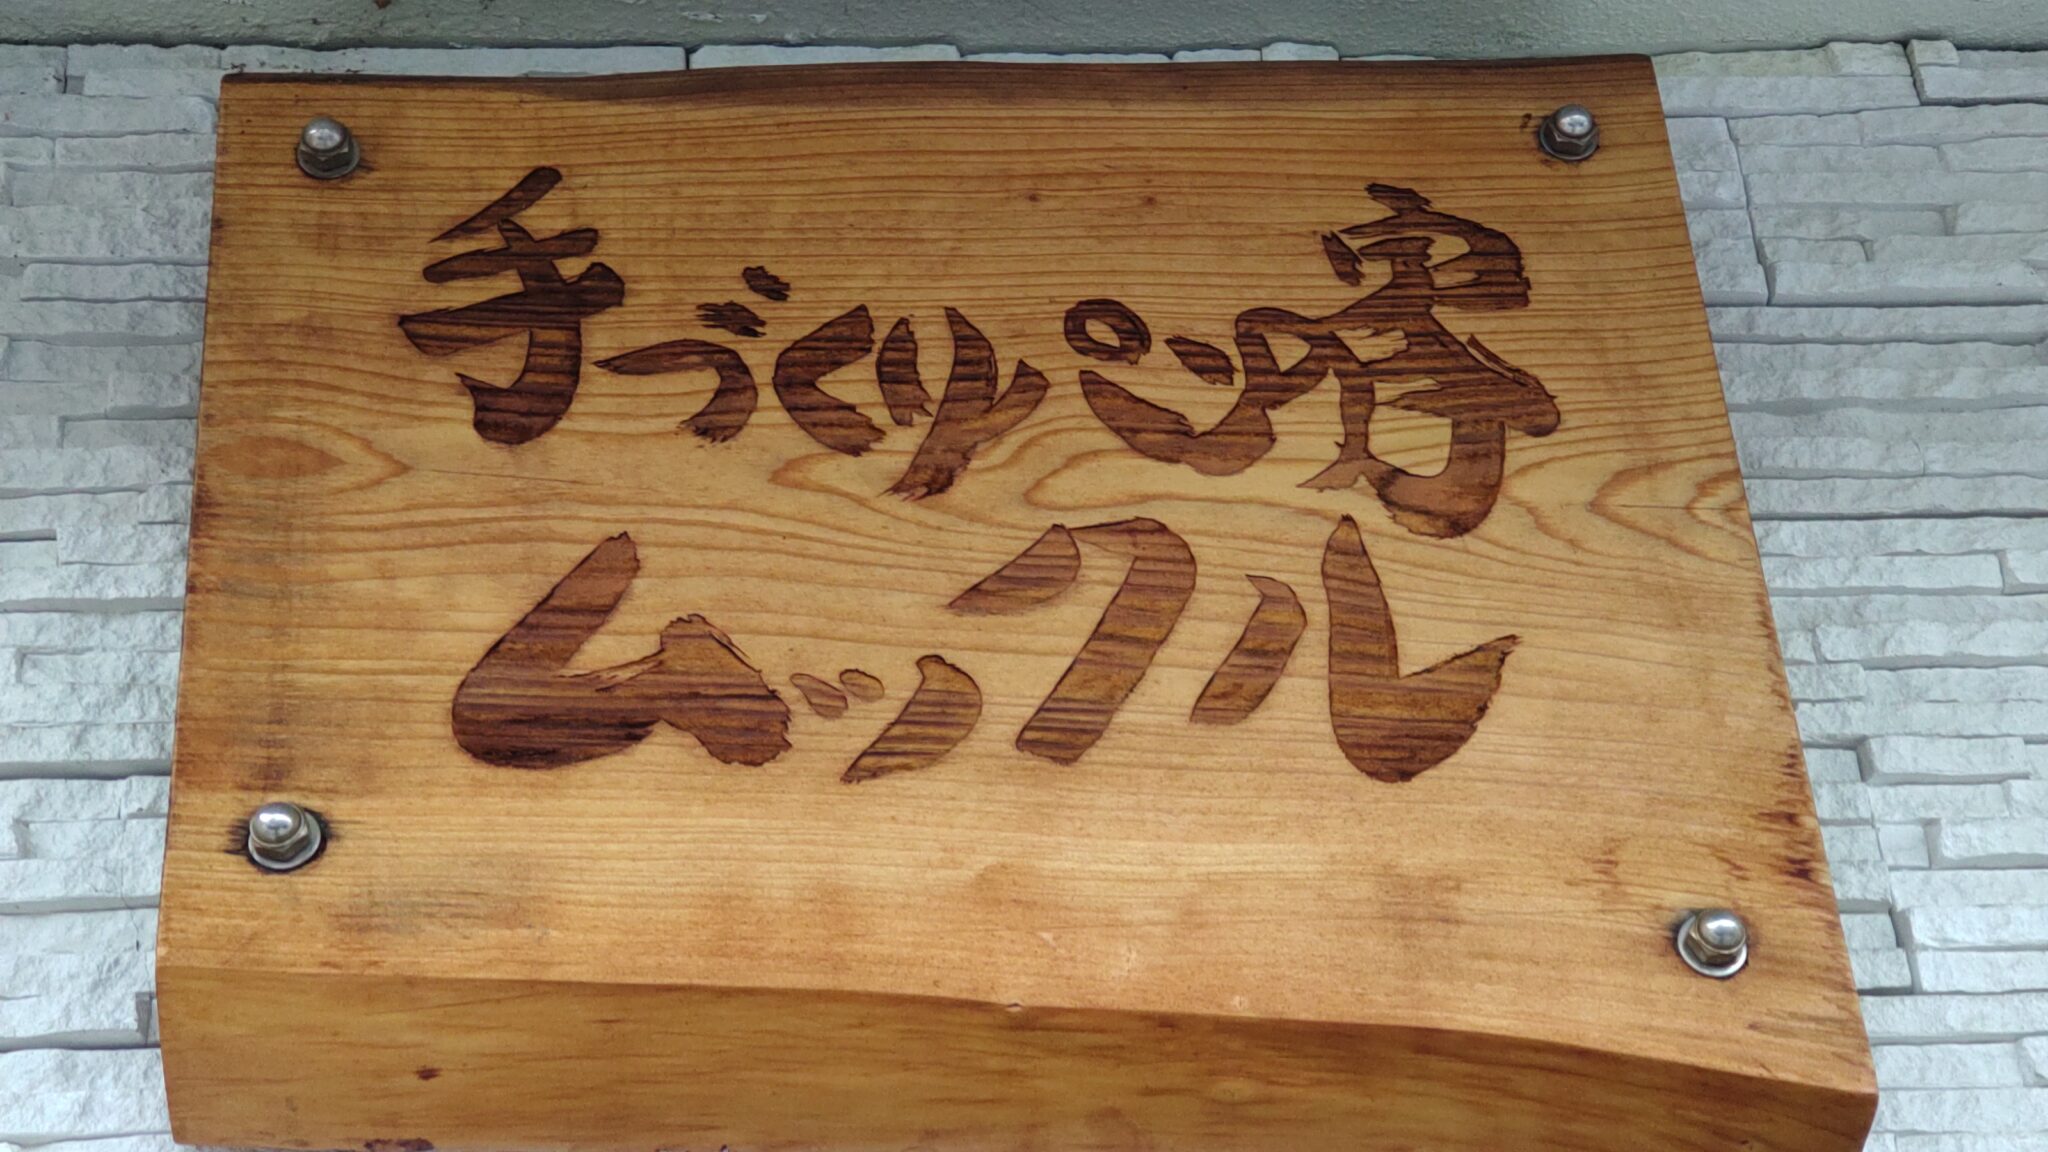 手づくりパン房
ムックル